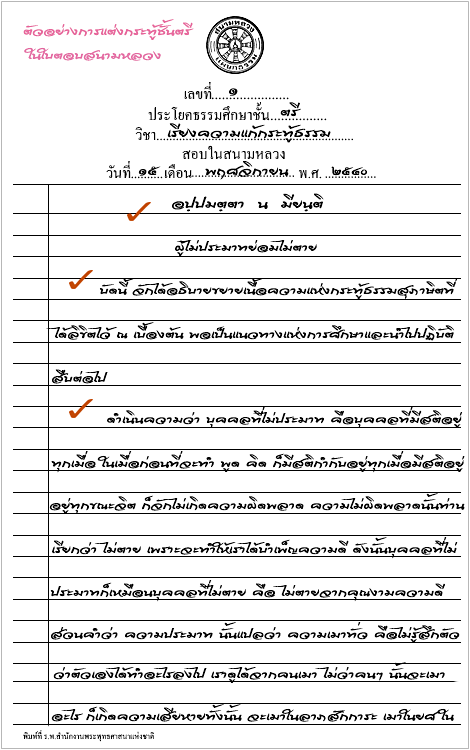 ตัวอย่างการแต่งกระทู้ชั้นตรี
ในใบตอบสนามหลวง
สนามหลวง
แผนกธรรม
เลขที่.....๑.....................
ประโยคธรรมศึกษาชั้น...ตรี...............
วิชา...เรียงความแก้กระทู้ธรรม......
สอบในสนามหลวง
วันที่..๑๕..เดือน...พฤศจิกายน.. พ.ศ. ..๒๕๔๐......
อปฺปมตฺตา น มียนฺติ
ผู้ไม่ประมาทย่อมไม่ตาย
บัดนี้ จักได้อธิบายขยายเนื้อความแห่งกระทู้ธรรมสุภาษิตที่
ได้ลิขิตไว้ ณ เบื้องต้น พอเป็นแนวทางแห่งการศึกษาและนำไปปฏิบัติ
สืบต่อไป
ดำเนินความว่า บุคคลที่ไม่ประมาท คือบุคคลที่มีสติอยู่
ทุกเมื่อ ในเมื่อก่อนที่จะทำ พูด คิด ก็มีสติกำกับอยู่ทุกเมื่อมีสติอยู่
อยู่ทุกขณะจิต ก็จักไม่เกิดความผิดพลาด ความไม่ผิดพลาดนั้นท่าน
เรียกว่า ไม่ตาย เพราะจะทำให้เราได้บำเพ็ญความดี ดังนั้นบุคคลที่ไม่
ประมาทก็เหมือนบุคคลที่ไม่ตาย คือ ไม่ตายจากคุณงามความดี
ส่วนคำว่า ความประมาท นั้นแปลว่า ความเมาทั่ว คือไม่รู้สึกตัว
ว่าตัวเองได้ทำอะไรลงไป เราดูได้จากคนเมา ไม่ว่าคนๆ นั้นจะเมา
อะไร ก็เกิดความเสียหายทั้งนั้น จะเมาในลาภสักการะ เมาในยศ ใน
พิมพ์ที่ ร.พ.สำนักงานพระพุทธศาสนาแห่งชาติ